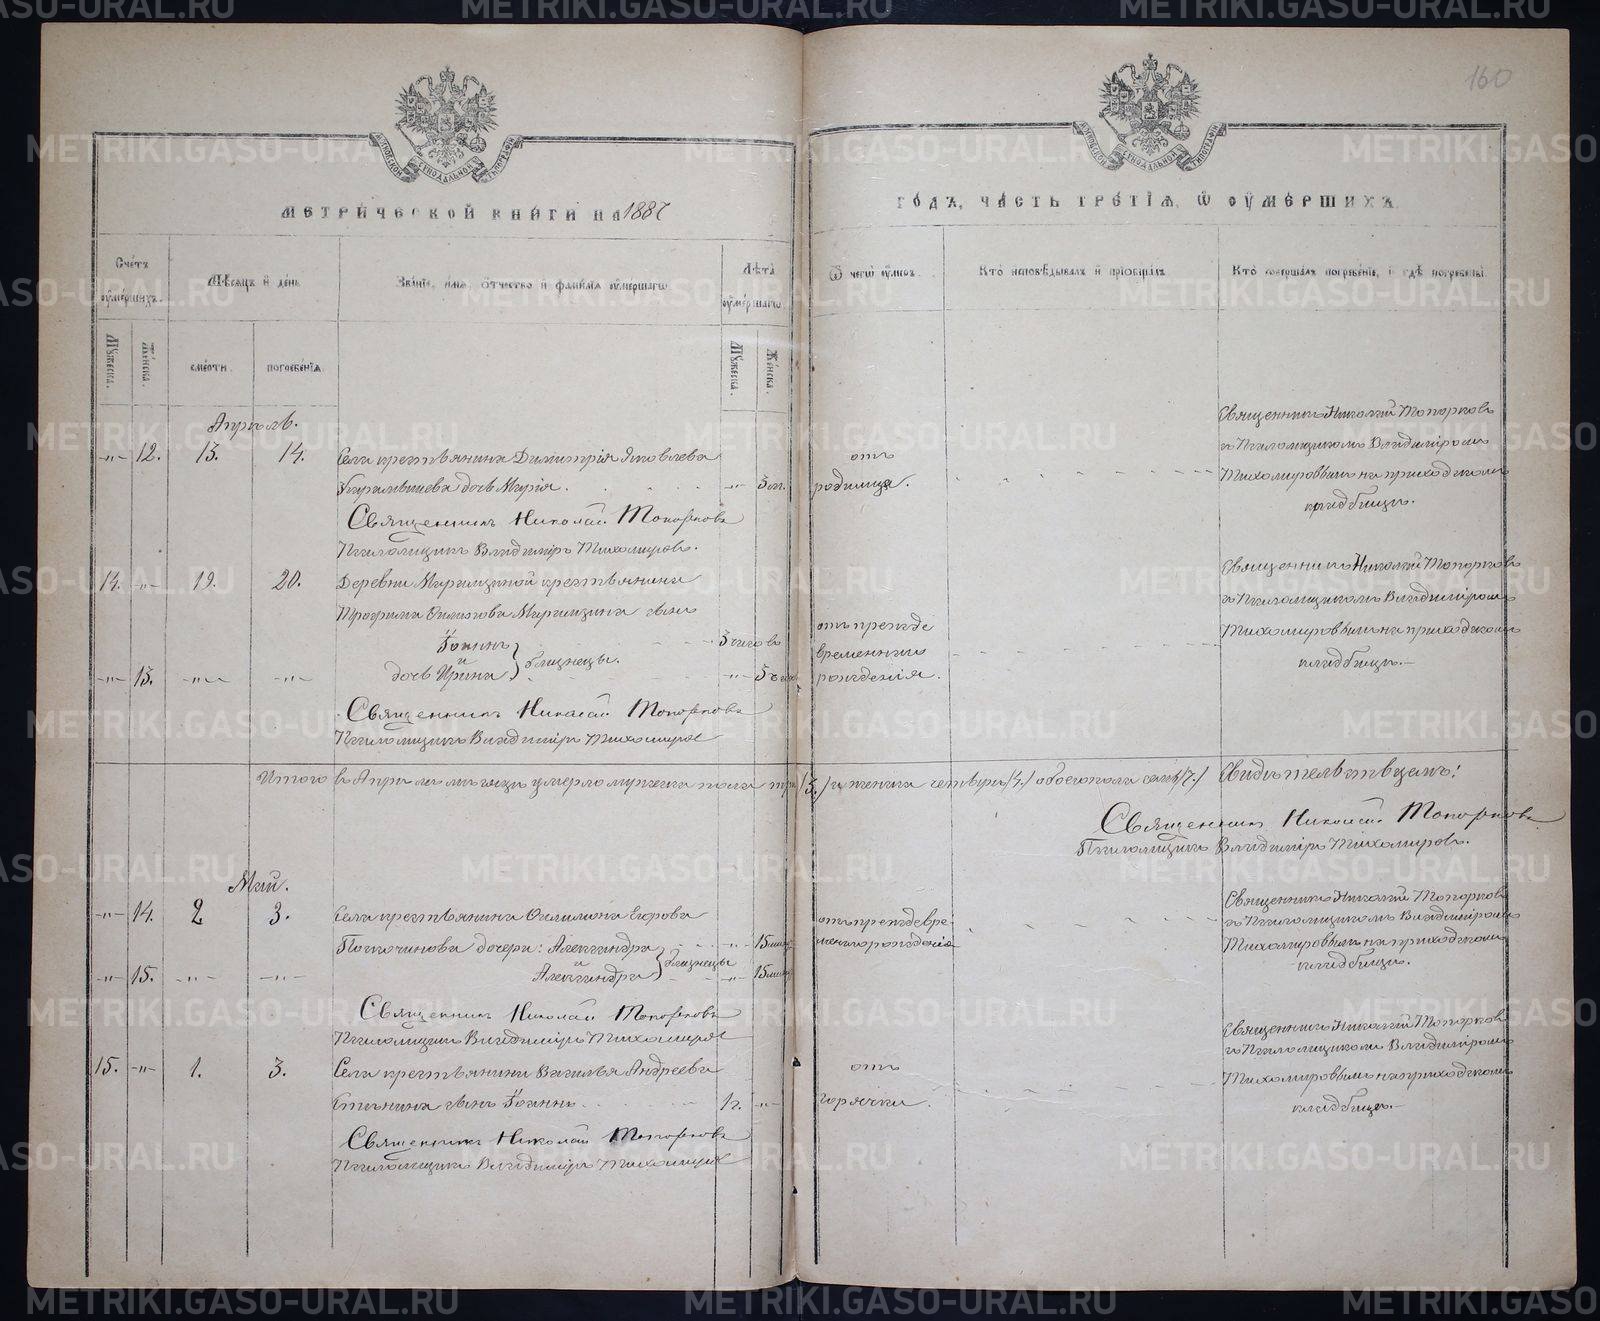 160
МЕТРИЧЕСКОЙ КНИГИ НА 1887
ГОДЪ, ЧАСТЬ ТРЕТІЯ, Ѿ ОУМЕРШИХЪ.
Счетъ оумершихъ.
Мѣсяцъ и день
Званіе, имя, отчество и фамилія оумершагѡ
Лѣта оумершагѡ
Ѿ чегѡ оумеръ.
Кто исповѣдывалъ и пріобщалъ
Кто совершалъ погребеніе, и гдѣ погребены.
Мужеска.
Женска.
смерти.
погребенія.
Мужеска.
Женска.
Апрѣль.
-"- 12. 13. 14. Села крестьянина Димитрія Яковлева
дочь Марія. -"- 3 м.
отъ
родимца.
Священникъ Николай Топорковъ
съ Псаломщикомъ Владиміромъ
Тихомировымъ на приходскомъ
кладбищѣ.
Священникъ Николай Топорковъ
Псаломщикъ Владиміръ Тихомировъ.
14. -"- 19. 20. Деревни крестьянина
Трофима сынъ
Іоаннъ 5 часовъ
-"- 13. -"- -"- дочь Ирина и близнецы. -"-
отъ прежде
временнаго
рожденія.
Священникъ Николай Топорковъ
съ Псаломщикомъ Владиміромъ
Тихомировымъ на приходскомъ
кладбищѣ.-
Священникъ Николай Топорковъ
Псаломщикъ Владиміръ Тихомировъ
Итого въ Апрѣлѣ мѣсяцѣ умерло мужеска пола три /3./ и женска четыре /4./ обоего пола семь /7./ Свидѣтельствуемъ:
Священникъ Николай Топорковъ
Псаломщикъ Владиміръ Тихомировъ.
Май.
-"- 14. 2 3. Села крестьянина Филимона Егорова
дочери: Александра -"- 15 минут
-"- 15. -"- -"- и Александра близнецы -"- 15 минут
отъ преждевре
меннаго рожденія
Священникъ Николай Топорковъ
съ Псаломщикомъ Владиміромъ
Тихомировымъ на приходскомъ
кладбищѣ.
Священникъ Николай Топорковъ
Псаломщикъ Владиміръ Тихомировъ
15. -"- 1. 3. Села крестьянина Василья Андреева
сынъ Іоаннъ 1 г. -"-
отъ
горячки.
Священникъ Николай Топорковъ
съ Псаломщикомъ Владиміромъ
Тихомировымъ на приходскомъ
кладбищѣ.-
Священникъ Николай Топорковъ
Псаломщикъ Владиміръ Тихомировъ
METRIKI.GASO-URAL.RU